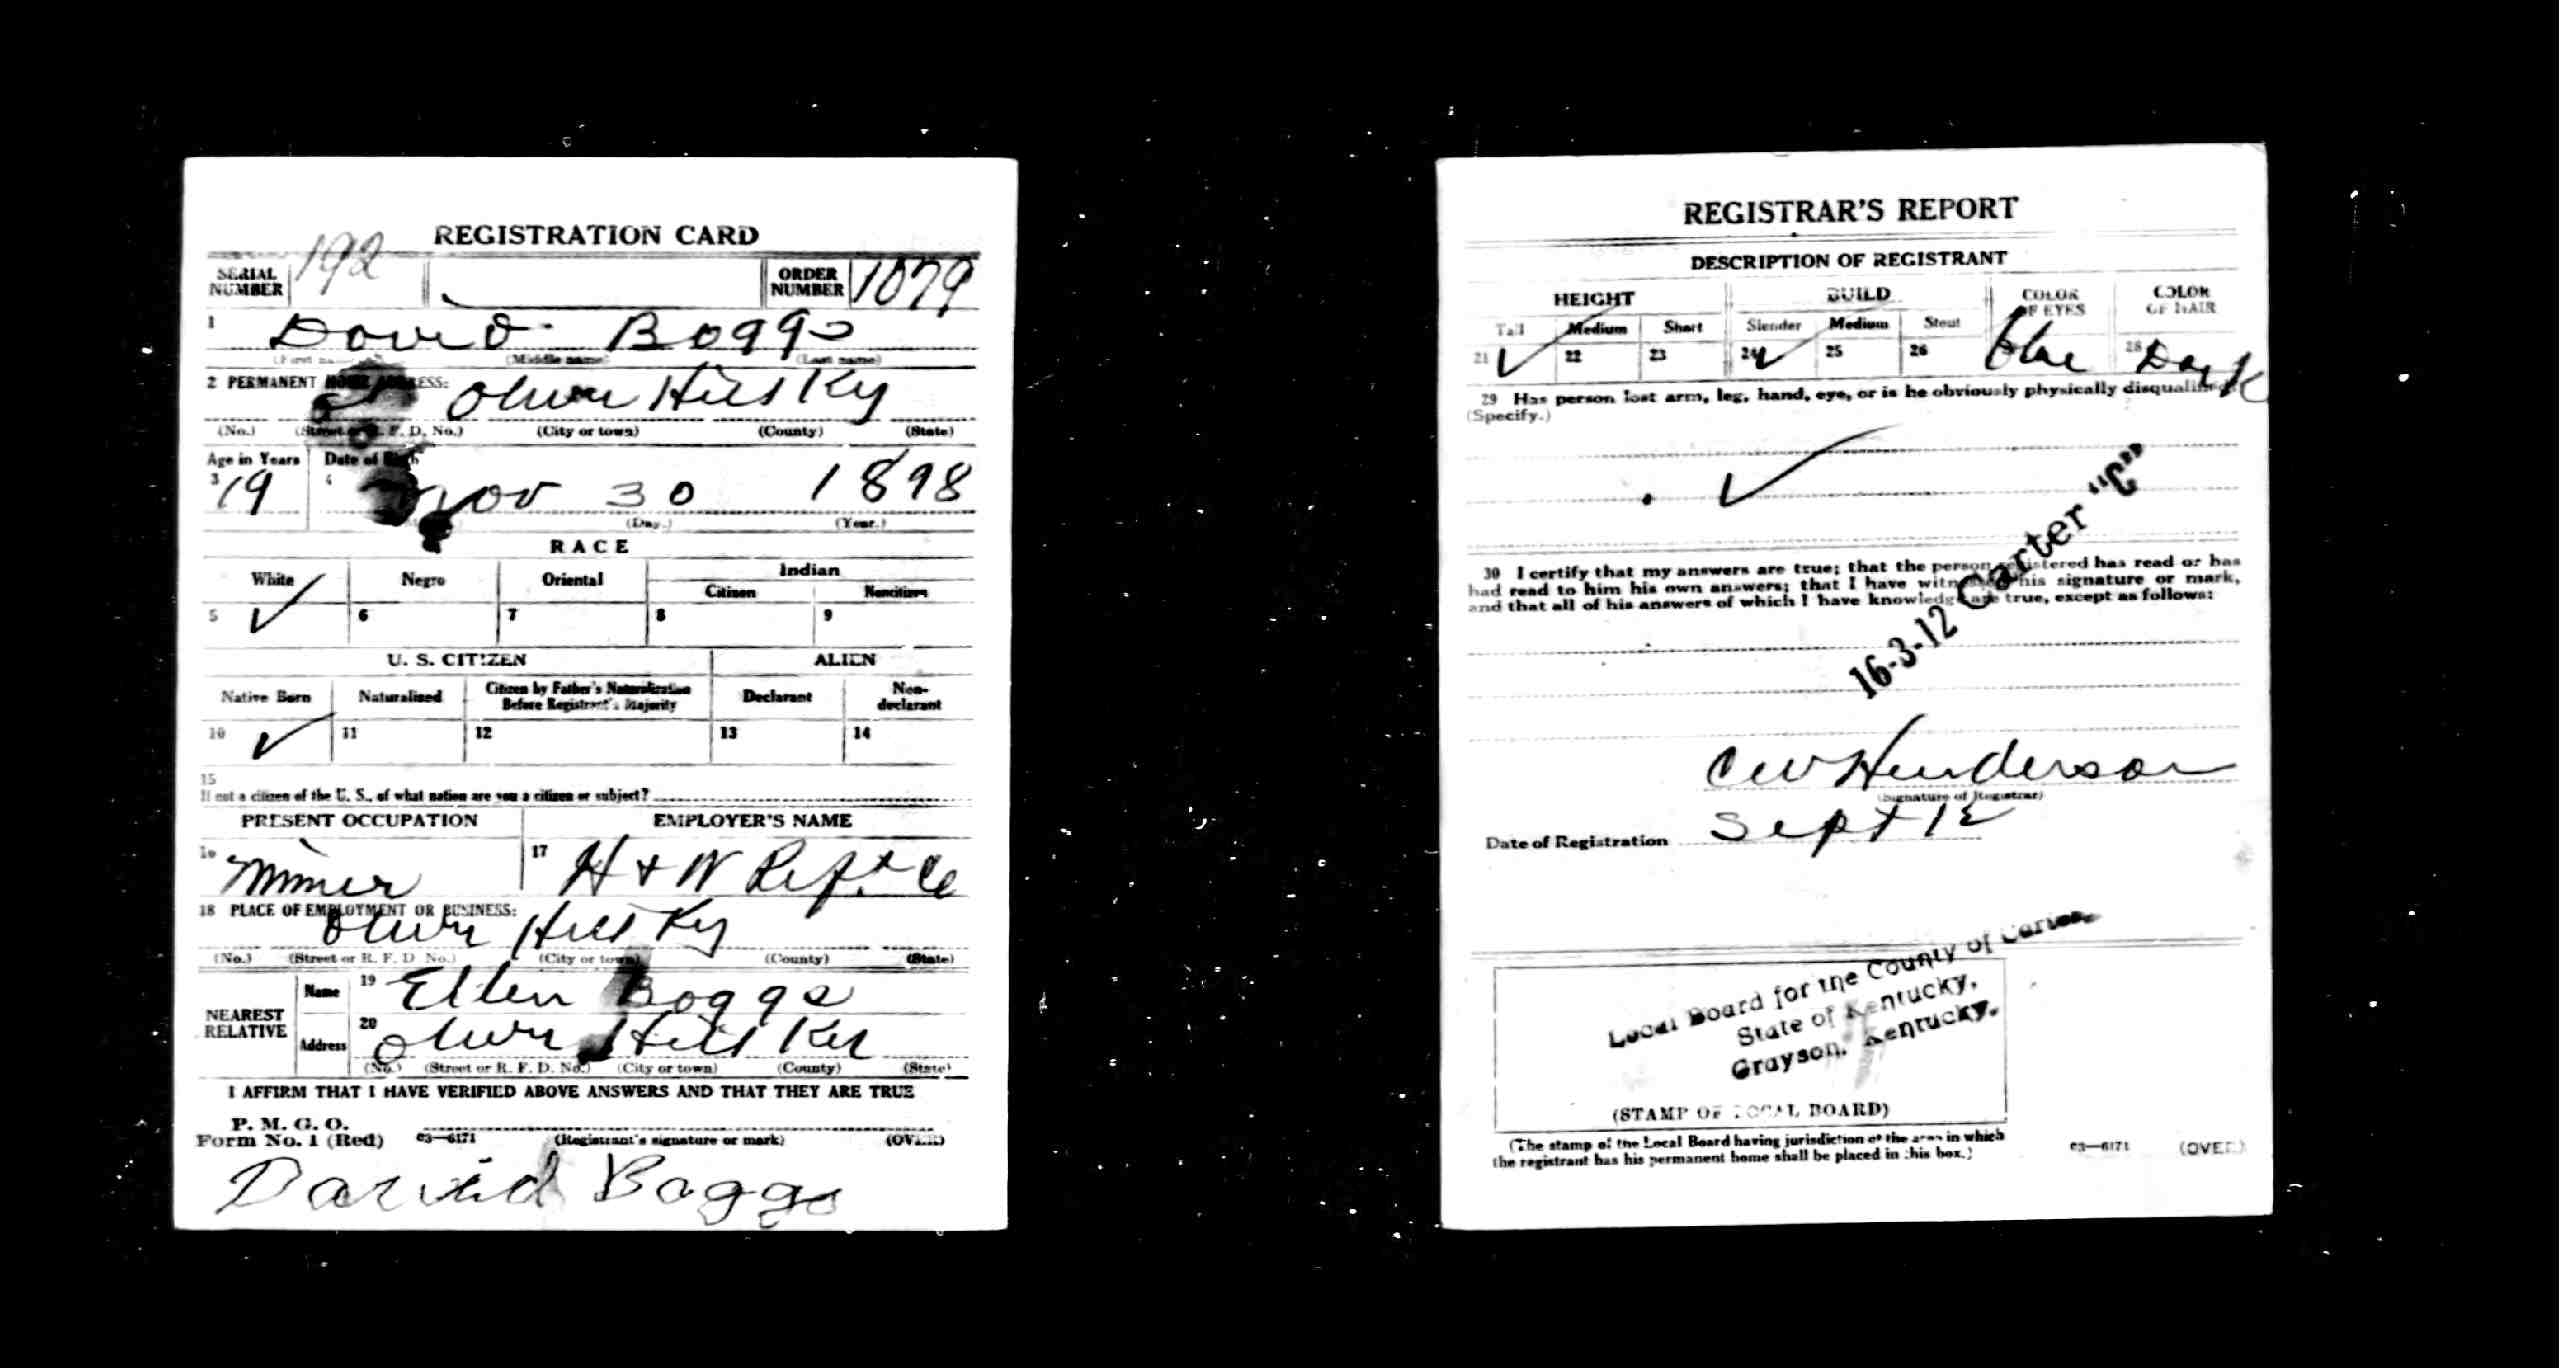 REGISTRATION CARD
SERIAL NUMBER 192 ORDER NUMBER 1079
1 David Boggs
(Middle name) (Last name)
2 PERMANENT HOME ADDRESS:
Oliver Hill Ky
(No.) (Street or R. F. D. No.) (City or town) (County) (State)
Age in Years Date of Birth
3 19 4 Nov 30 1898
(Day.) (Year.)
RACE
White Negro Oriental Indian
Citizen Noncitizen
5 ✓ 6 7 8 9
U. S. CITIZEN ALIEN
Native Born Naturalized Citizen by Father's Naturalization Before Registrant's Majority Declarant Non-declarant
10 ✓ 11 12 13 14
15
If not a citizen of the U. S., of what nation are you a citizen or subject?
PRESENT OCCUPATION EMPLOYER'S NAME
16 Miner 17 H + W Ref. Co
18 PLACE OF EMPLOYMENT OR BUSINESS:
Oliver Hill Ky
(No.) (Street or R. F. D. No.) (City or town) (County) (State)
NEAREST RELATIVE Name 19 Ellen Boggs
Address 20 Oliver Hill Ky
(No.) (Street or R. F. D. No.) (City or town) (County) (State)
I AFFIRM THAT I HAVE VERIFIED ABOVE ANSWERS AND THAT THEY ARE TRUE
P. M. G. O.
Form No. 1 (Red) 03—6171 (Registrant's signature or mark) (OVER)
Darvid Boggs
REGISTRAR'S REPORT
DESCRIPTION OF REGISTRANT
HEIGHT BUILD COLOR OF EYES COLOR OF HAIR
Tall Medium Short Slender Medium Stout
21 ✓ 22 23 24 ✓ 25 26 Blue 28 Dark
29 Has person lost arm, leg, hand, eye, or is he obviously physically disqualified?
(Specify.)
✓
30 I certify that my answers are true; that the person registered has read or has
had read to him his own answers; that I have witnessed his signature or mark,
and that all of his answers of which I have knowledge are true, except as follows:
16-3-12 Carter "C"
C W Henderson
(Signature of Registrar)
Date of Registration Sept 12
Local Board for the County of Carter,
State of Kentucky,
Grayson, Kentucky.
(STAMP OF LOCAL BOARD)
(The stamp of the Local Board having jurisdiction of the area in which
the registrant has his permanent home shall be placed in this box.)
03—6171 (OVER)